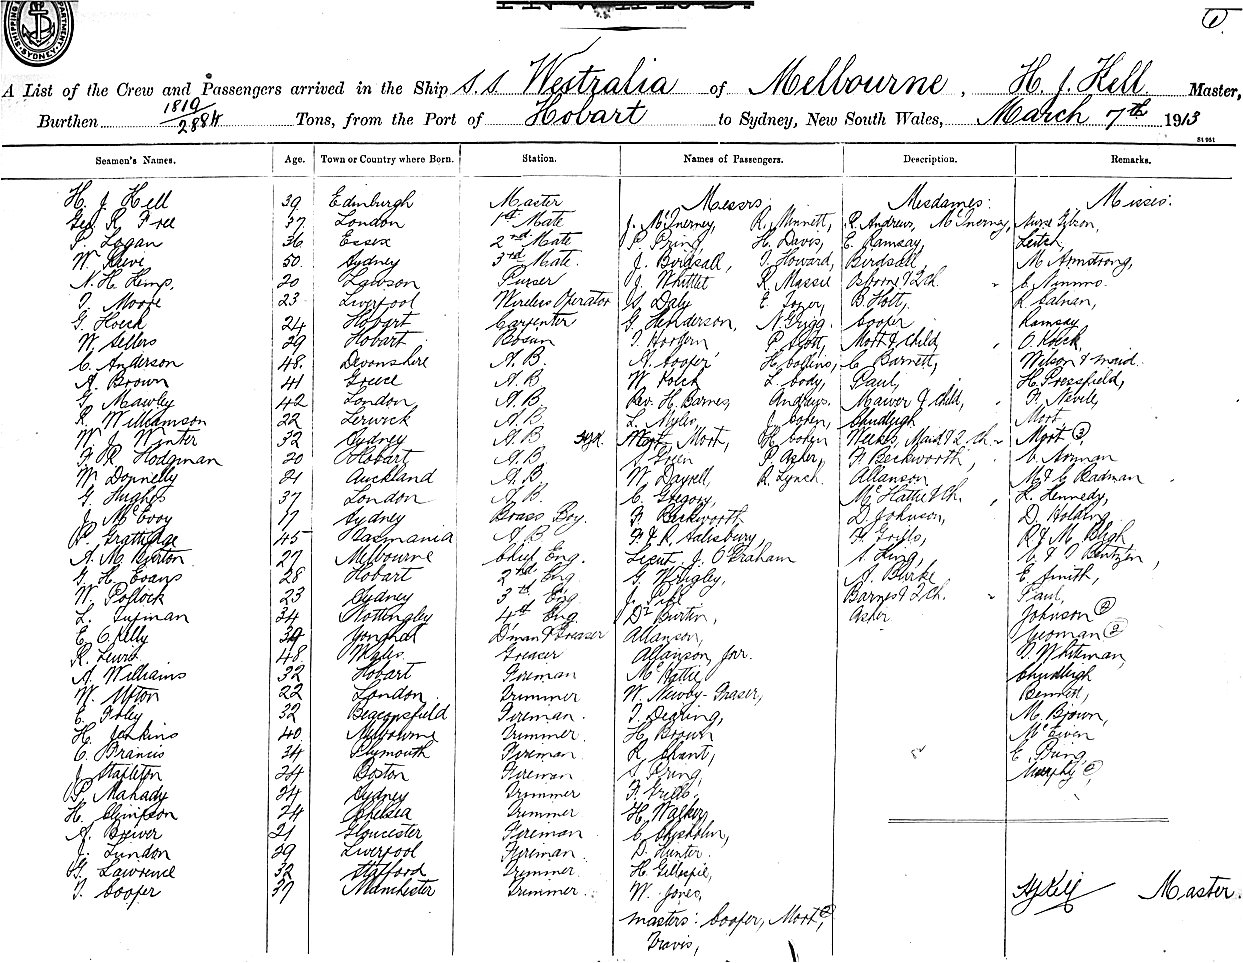 SHIPPING DEPARTMENT SYDNEY
1.
A List of the Crew and Passengers arrived in the Ship S.S. Westralia of Melbourne, H. J. Kell Master,
Burthen 1819/2884 Tons, from the Port of Hobart to Sydney, New South Wales, March 7th 1913
Seamen's Names. Age. Town or Country where Born. Station. Names of Passengers. Description. Remarks.
H. J. Kell 39 Edinburgh Master Messrs: Mesdames: Misses:
Geo. R. Free 37 London 1st Mate J. McInerney, R. Minnett, R. Andrews, McInerney, Nurse Gibson,
Logan 36 Essex 2nd Mate P. Pring, H. Davis, E. Ramsay, Leitch,
W. Reeve 50 Sydney 3rd Mate J. Birdsall, T. Howard, Birdsall, M. Armstrong,
N. H. Kemp 20 Lawson Purser J. Whittet R. Massie Osborne & 2 ch. C. Nimmo.
T. Moore 23 Liverpool Wireless Operator S. Daly E. Joyner, B. Holt,
G. Hoeck 24 Hobart Carpenter G. Henderson, N. Grigg. Cooper Ramsay
W. Sellers 29 Hobart Bosun P. Scott, Moort & Child O. Koeck,
C. Anderson 48 Devonshire A.B. A. Cooper H. Collins, C. Barnett, Wilson & maid.
A. Brown 41 Greece A.B. W. L. Cody, Paul, H. Pressfield,
G. Mawley 42 London, A.B. Rev. H. Barnes Andrews. Mawer & Child, Nevill,
R. Williamson 22 Lerwick A.B. L. Myles, J. Cohen, Chudleigh Moort
W. J. Winter 32 Sydney A.B. Moort, H. Cohen Weekes, Maid & 2 ch. Moort 3,
F. R. Hodgman 20 Hobart A.B. Green P. Asher, F. Beckworth,
W. Donnelly 21 Auckland A.B. W. Dayrell R. Lynch. Allanson M & C Radman
G. Hughes 37 London A.B. C. Gregory, McHattie & Ch. L. Kennedy,
J. McEvoy 17 Sydney Brass Boy. F. Beckworth D. Johnson, D. Holding
P. Grattidge 45 Tasmania A.B. F & R Salisbury, F. Frills, R. J. M. Bligh
A. M. Burton 27 Melbourne Chief Eng. Lieut. J. O'Graham King, Bentzen,
G. H. Evans 28 Hobart 2nd Eng G. Wrigley, A. Blake E. Smith,
W. Pollock 23 Sydney 3rd Eng Barnes & 2 Ch. Paul,
L. 34 Nottingley 4th Eng Dr. Burton, Asher Johnson 2
E. O'Kelly 39 Youghal D'man & Greaser Allanson, Yeoman 2
R. Lewis 48 Wales Greaser Allanson, Jnr. Whiteman,
A. Williams 32 Hobart Fireman McHattie Chudleigh
W. Upton 22 London Trimmer W. Newby-Fraser,
E. Foley 32 Beaconsfield Fireman. T. Dearing, M. Brown,
H. Jenkins 40 Melbourne Trimmer H. Brown McEwen
C. Francis 34 Plymouth Fireman R. Chant, E. Pring,
J. Stapleton 24 Boston Fireman S. Pring, Murphy 2,
P. Mahady 24 Sydney Trimmer F. Frills,
H. Simpson 24 Chelsea Trimmer H. Walker,
A. Brewer 21 Gloucester Fireman C. Chisholm,
J. Lundon 29 Liverpool Fireman D. Hunter.
Lawrence 32 Stafford Trimmer H. Gillespie,
T. Cooper 37 Manchester Trimmer W. Jones, HJKell Master.
Masters: Cooper, Moort 2,
Travis,